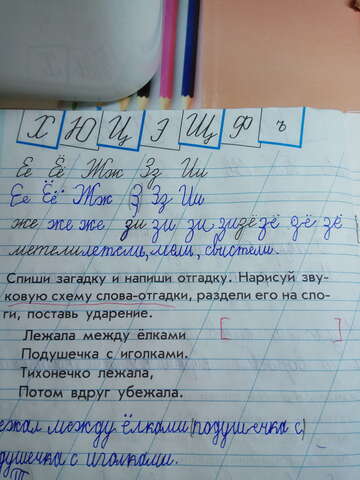 Х Ю Ц Э Щ Ф ъ
Ее Ёё Жж Зз Ии
Ее Ёё Жж З Зз Ии
же же же зи зи зи зи зё зё зё зё
метели летели, свистели.
Спиши загадку и напиши отгадку. Нарисуй зву-
ковую схему слова-отгадки, раздели его на сло-
ги, поставь ударение.
Лежала между ёлками [ ]
Подушечка с иголками.
Тихонечко лежала,
Потом вдруг убежала.
ежал между ёлками (подуш-ечка с)
душечка с иголками.